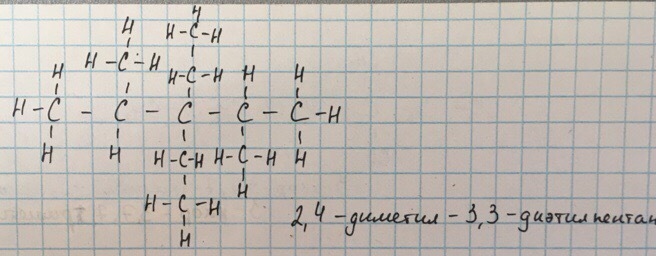 H
H H-C-H
H-C-H H-C-H H H
H
H-C - C - C - C - C-H
H H H-C-H H-C-H H
H-C-H H
H
2,4-диметил-3,3-диэтилпентан